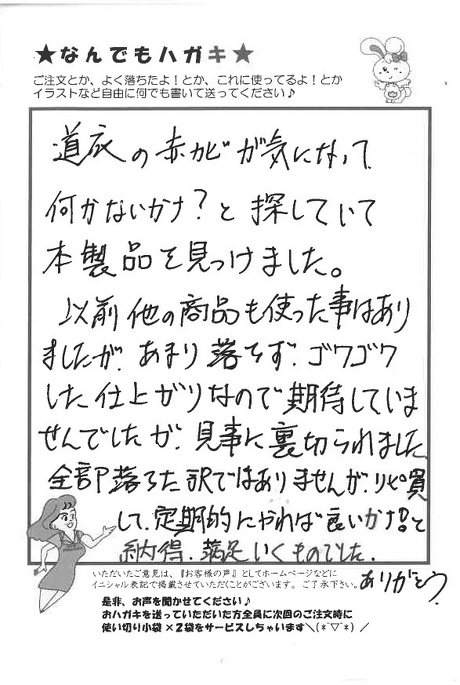 ★なんでもハガキ★
ご注文とか、よく落ちたよ！とか、これに使ってるよ！とか
イラストなど自由に何でも書いて送ってください♪
道衣の赤カビが気になって
何かないかな？と探していて
本製品を見つけました。
以前他の商品も使った事はあり
ましたが、あまり落ちず、ゴワゴワ
した仕上がりなので期待していま
せんでしたが、見事に裏切られました
全部落ちた訳ではありませんが、リピ買
して、定期的にやれば良いかな？と
納得、満足いくものでした。
ありがとう
いただいたご意見は、『お客様の声』としてホームページなどに
イニシャル表記で掲載させていただくことがございます。ご了承下さい。
是非、お声を聞かせてください♪
おハガキを送っていただいた方全員に次回のご注文時に
使い切り小袋×2袋をサービスしちゃいます＼(*´▽`*)／